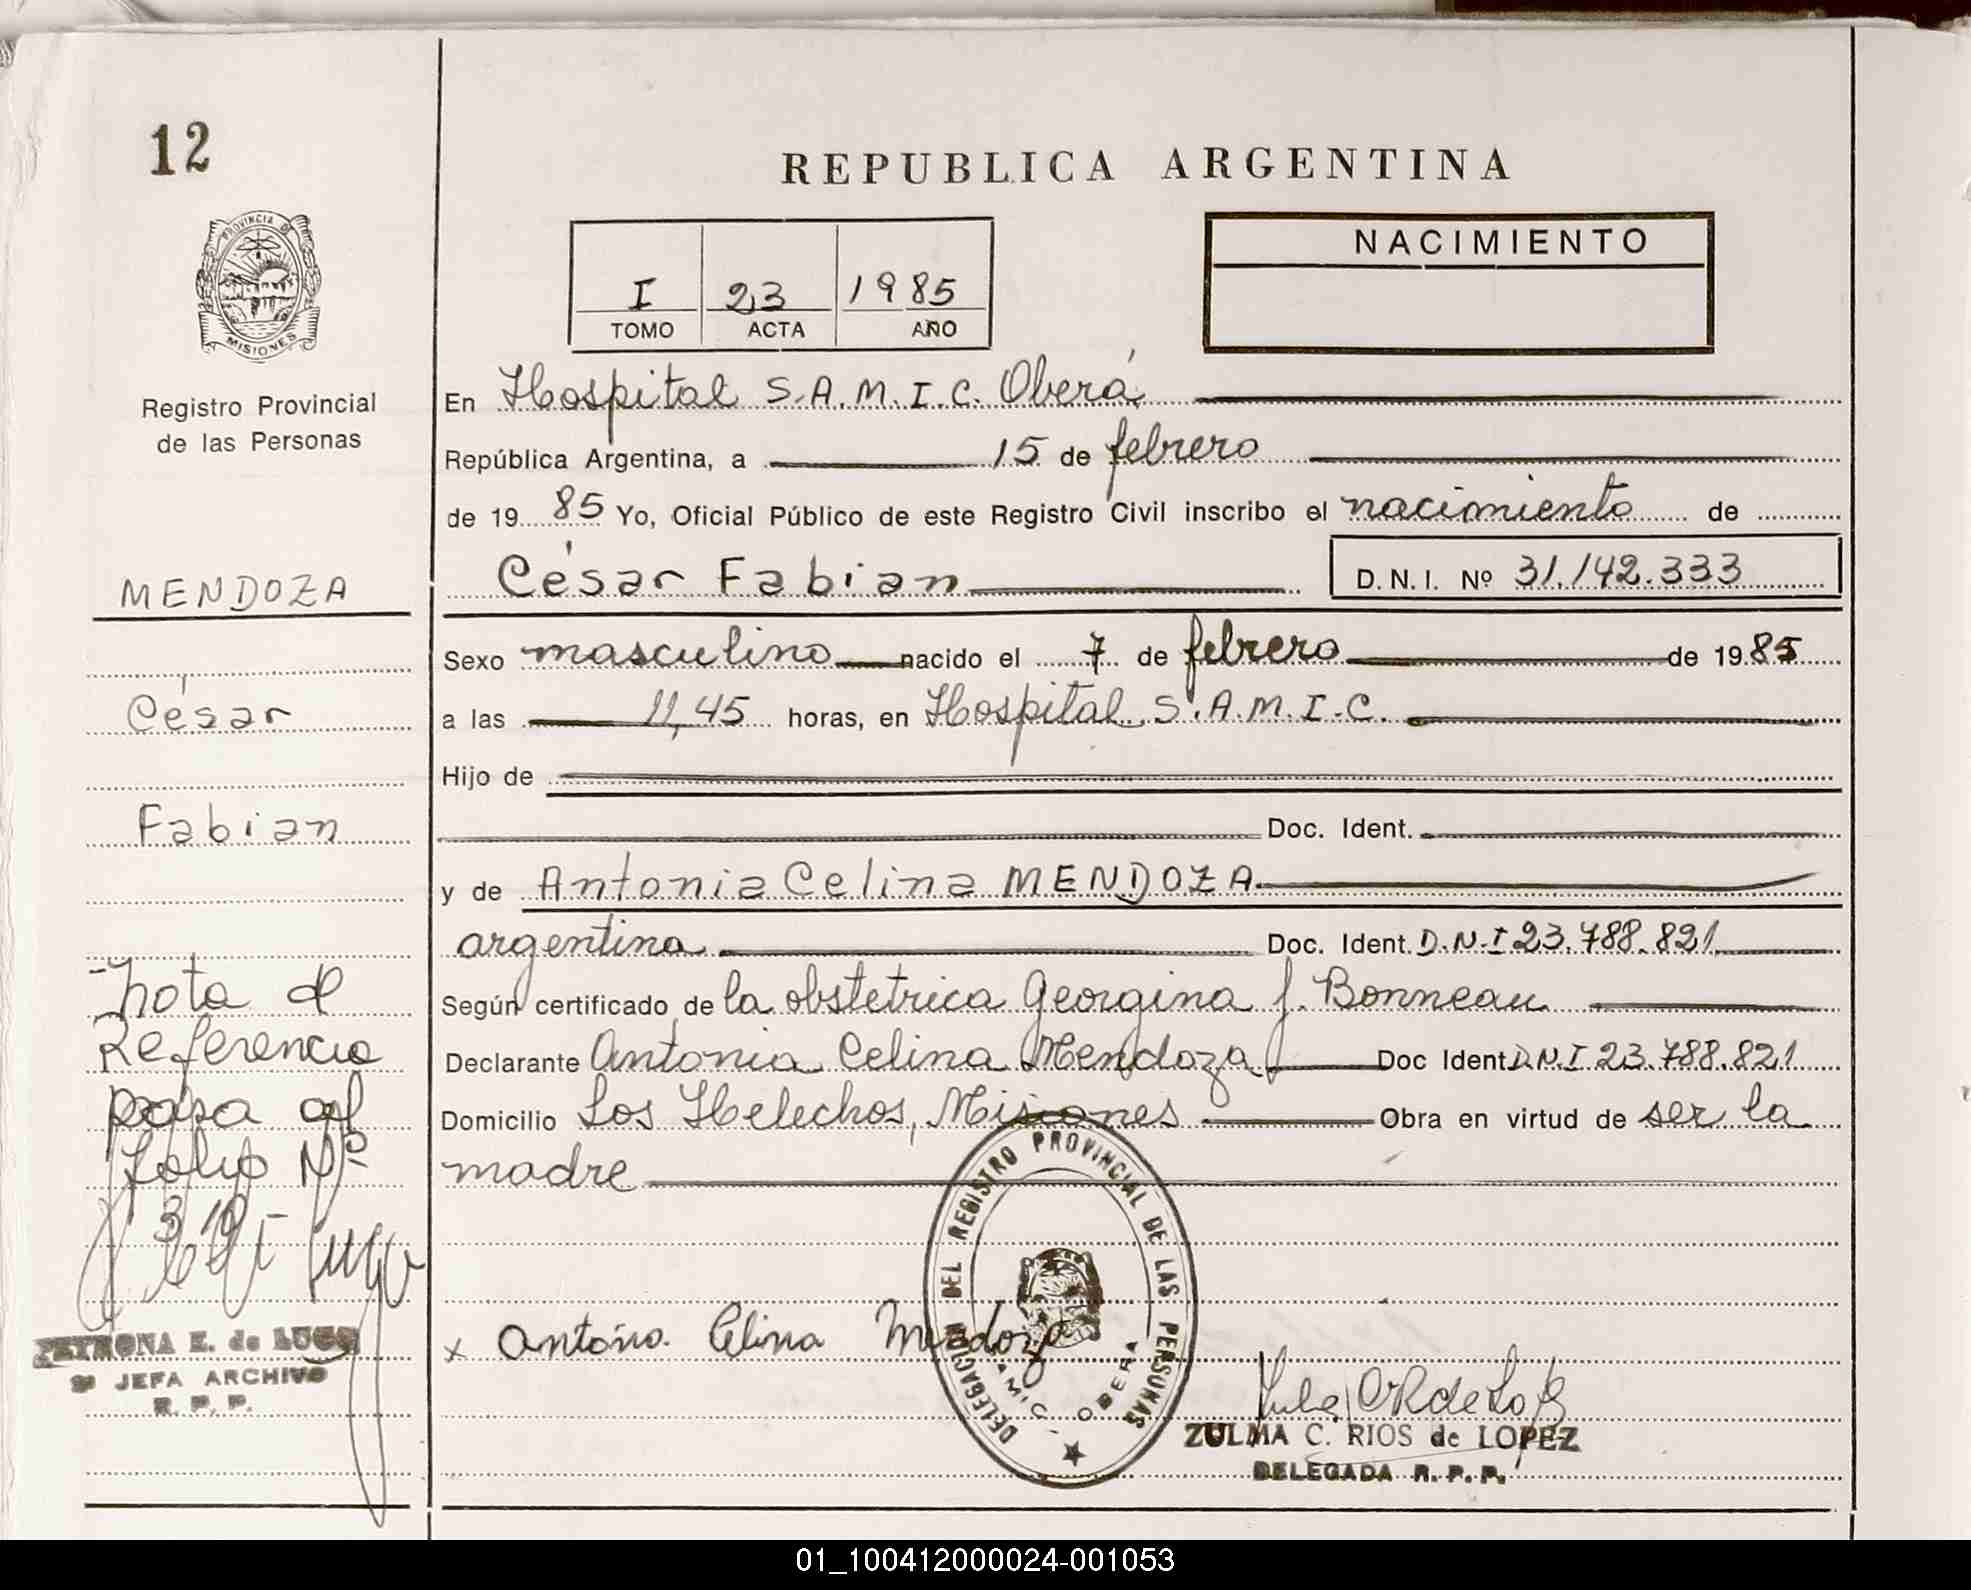 12
REPUBLICA ARGENTINA
PROVINCIA D
MISIONES
Registro Provincial
de las Personas
I 23 1985
TOMO ACTA AÑO
NACIMIENTO
En Hospital S.A.M.I.C. Oberá
República Argentina, a 15 de febrero
de 1985 Yo, Oficial Público de este Registro Civil inscribo el nacimiento de
César Fabian D.N.I. Nº 31.142.333
MENDOZA
César
Fabian
Sexo masculino nacido el 7 de febrero de 1985
a las 11,45 horas, en Hospital S.A.M.I.C.
Hijo de
Doc. Ident.
y de Antonia Celina MENDOZA
argentina Doc. Ident. D.N.I 23.788.821
Según certificado de la obstetrica Georgina J. Bonneau
Declarante Antonia Celina Mendoza Doc Ident D.N.I 23.788.821
Domicilio Los Helechos, Misiones Obra en virtud de ser la
madre
Nota de
Referencia
pasa al
folio Nº
310
PETRONA E. de LUGO
JEFA ARCHIVO
R. P. P.
DELEGACION DEL REGISTRO PROVINCIAL DE LAS PERSONAS
SAMIC - OBERA
x Antonia Celina Mendoza
ZULMA C. RIOS de LOPEZ
DELEGADA R. P. P.
01_100412000024-001053